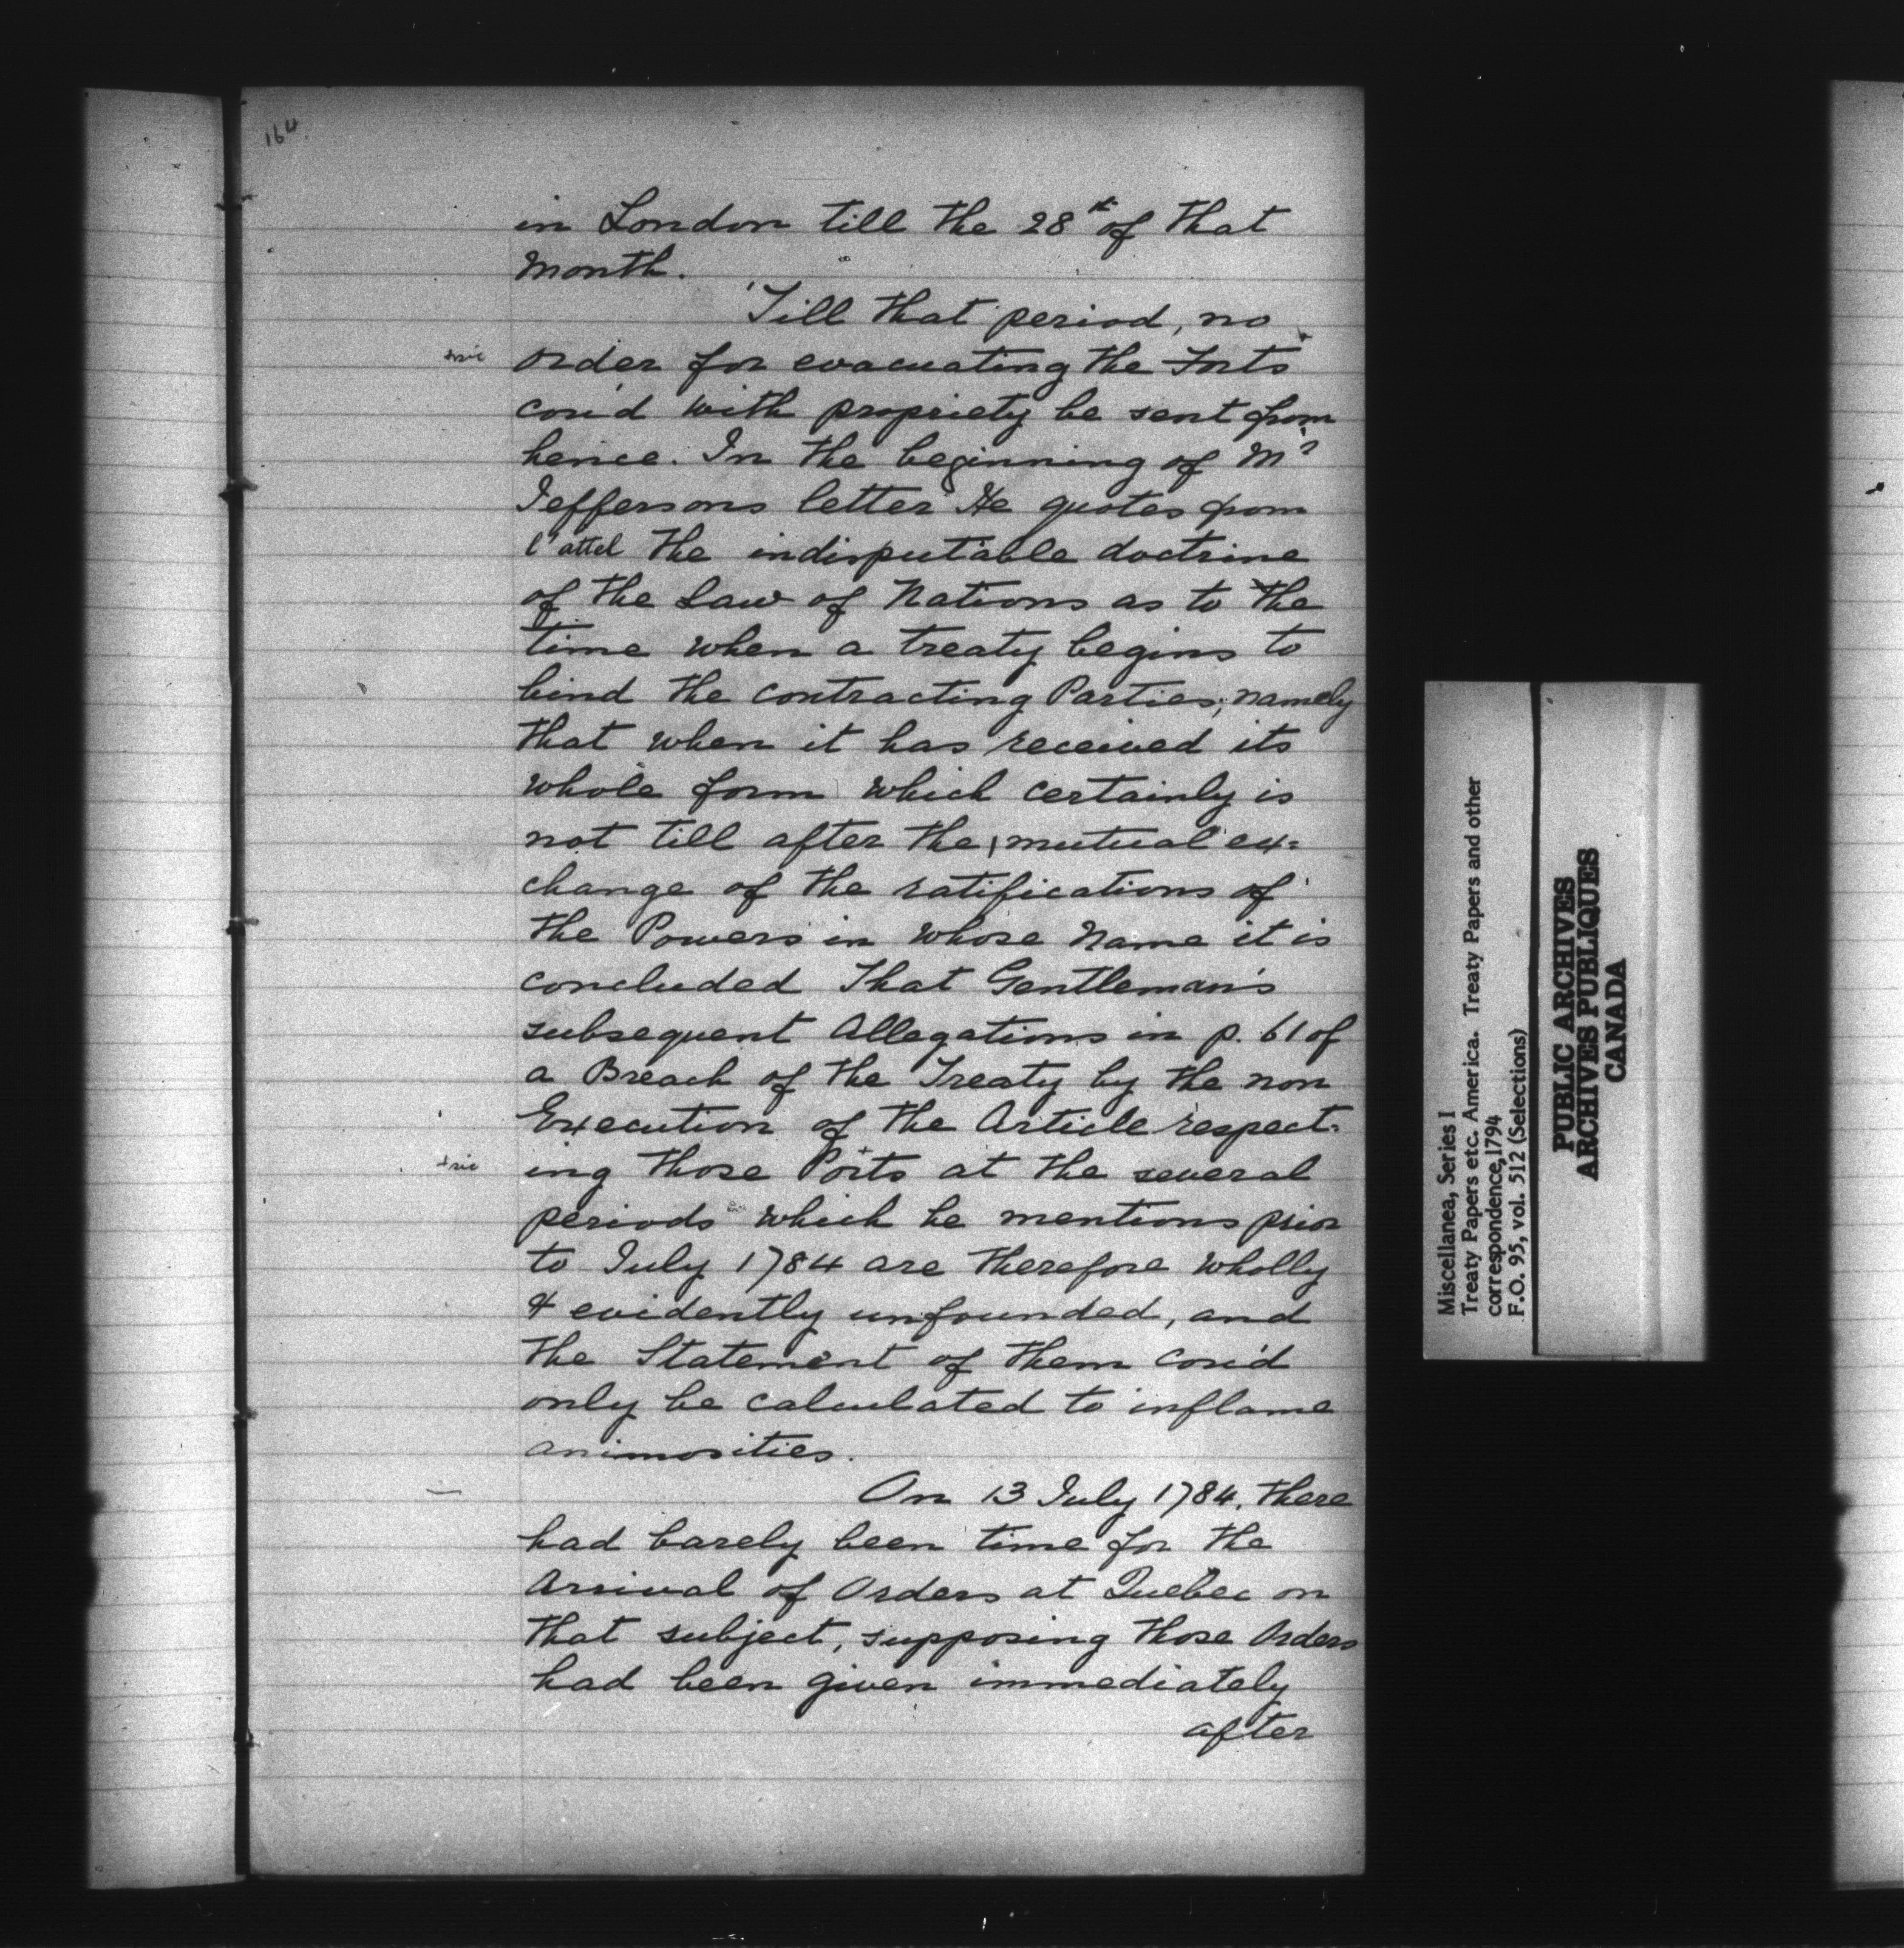 164.
in London till the 28th of that
Month.
Till that period, no
+sic order for evacuating the Forts
cou'd with propriety be sent from
hence. In the beginning of Mr
Jeffersons letter He quotes from
l'attel the indisputable doctrine
of the Law of Nations as to the
time when a treaty begins to
bind the contracting Parties; namely
that when it has received its
whole form which certainly is
not till after the mutual ex=
change of the ratifications of
the Powers in whose Name it is
concluded That Gentleman's
subsequent Allegations in p. 61 of
a Breach of the Treaty by the non
Execution of the Article respect-
+sic ing those Posts at the several
periods which he mentions prior
to July 1784 are therefore wholly
& evidently unfounded, and
the Statement of them cou'd
only be calculated to inflame
animosities.
On 13 July 1784, there
had barely been time for the
Arrival of Orders at Quebec on
that subject, supposing those Orders
had been given immediately
after
Miscellanea, Series I
Treaty Papers etc. America. Treaty Papers and other
correspondence, 1794
F.O. 95, vol. 512 (Selections)
PUBLIC ARCHIVES
ARCHIVES PUBLIQUES
CANADA